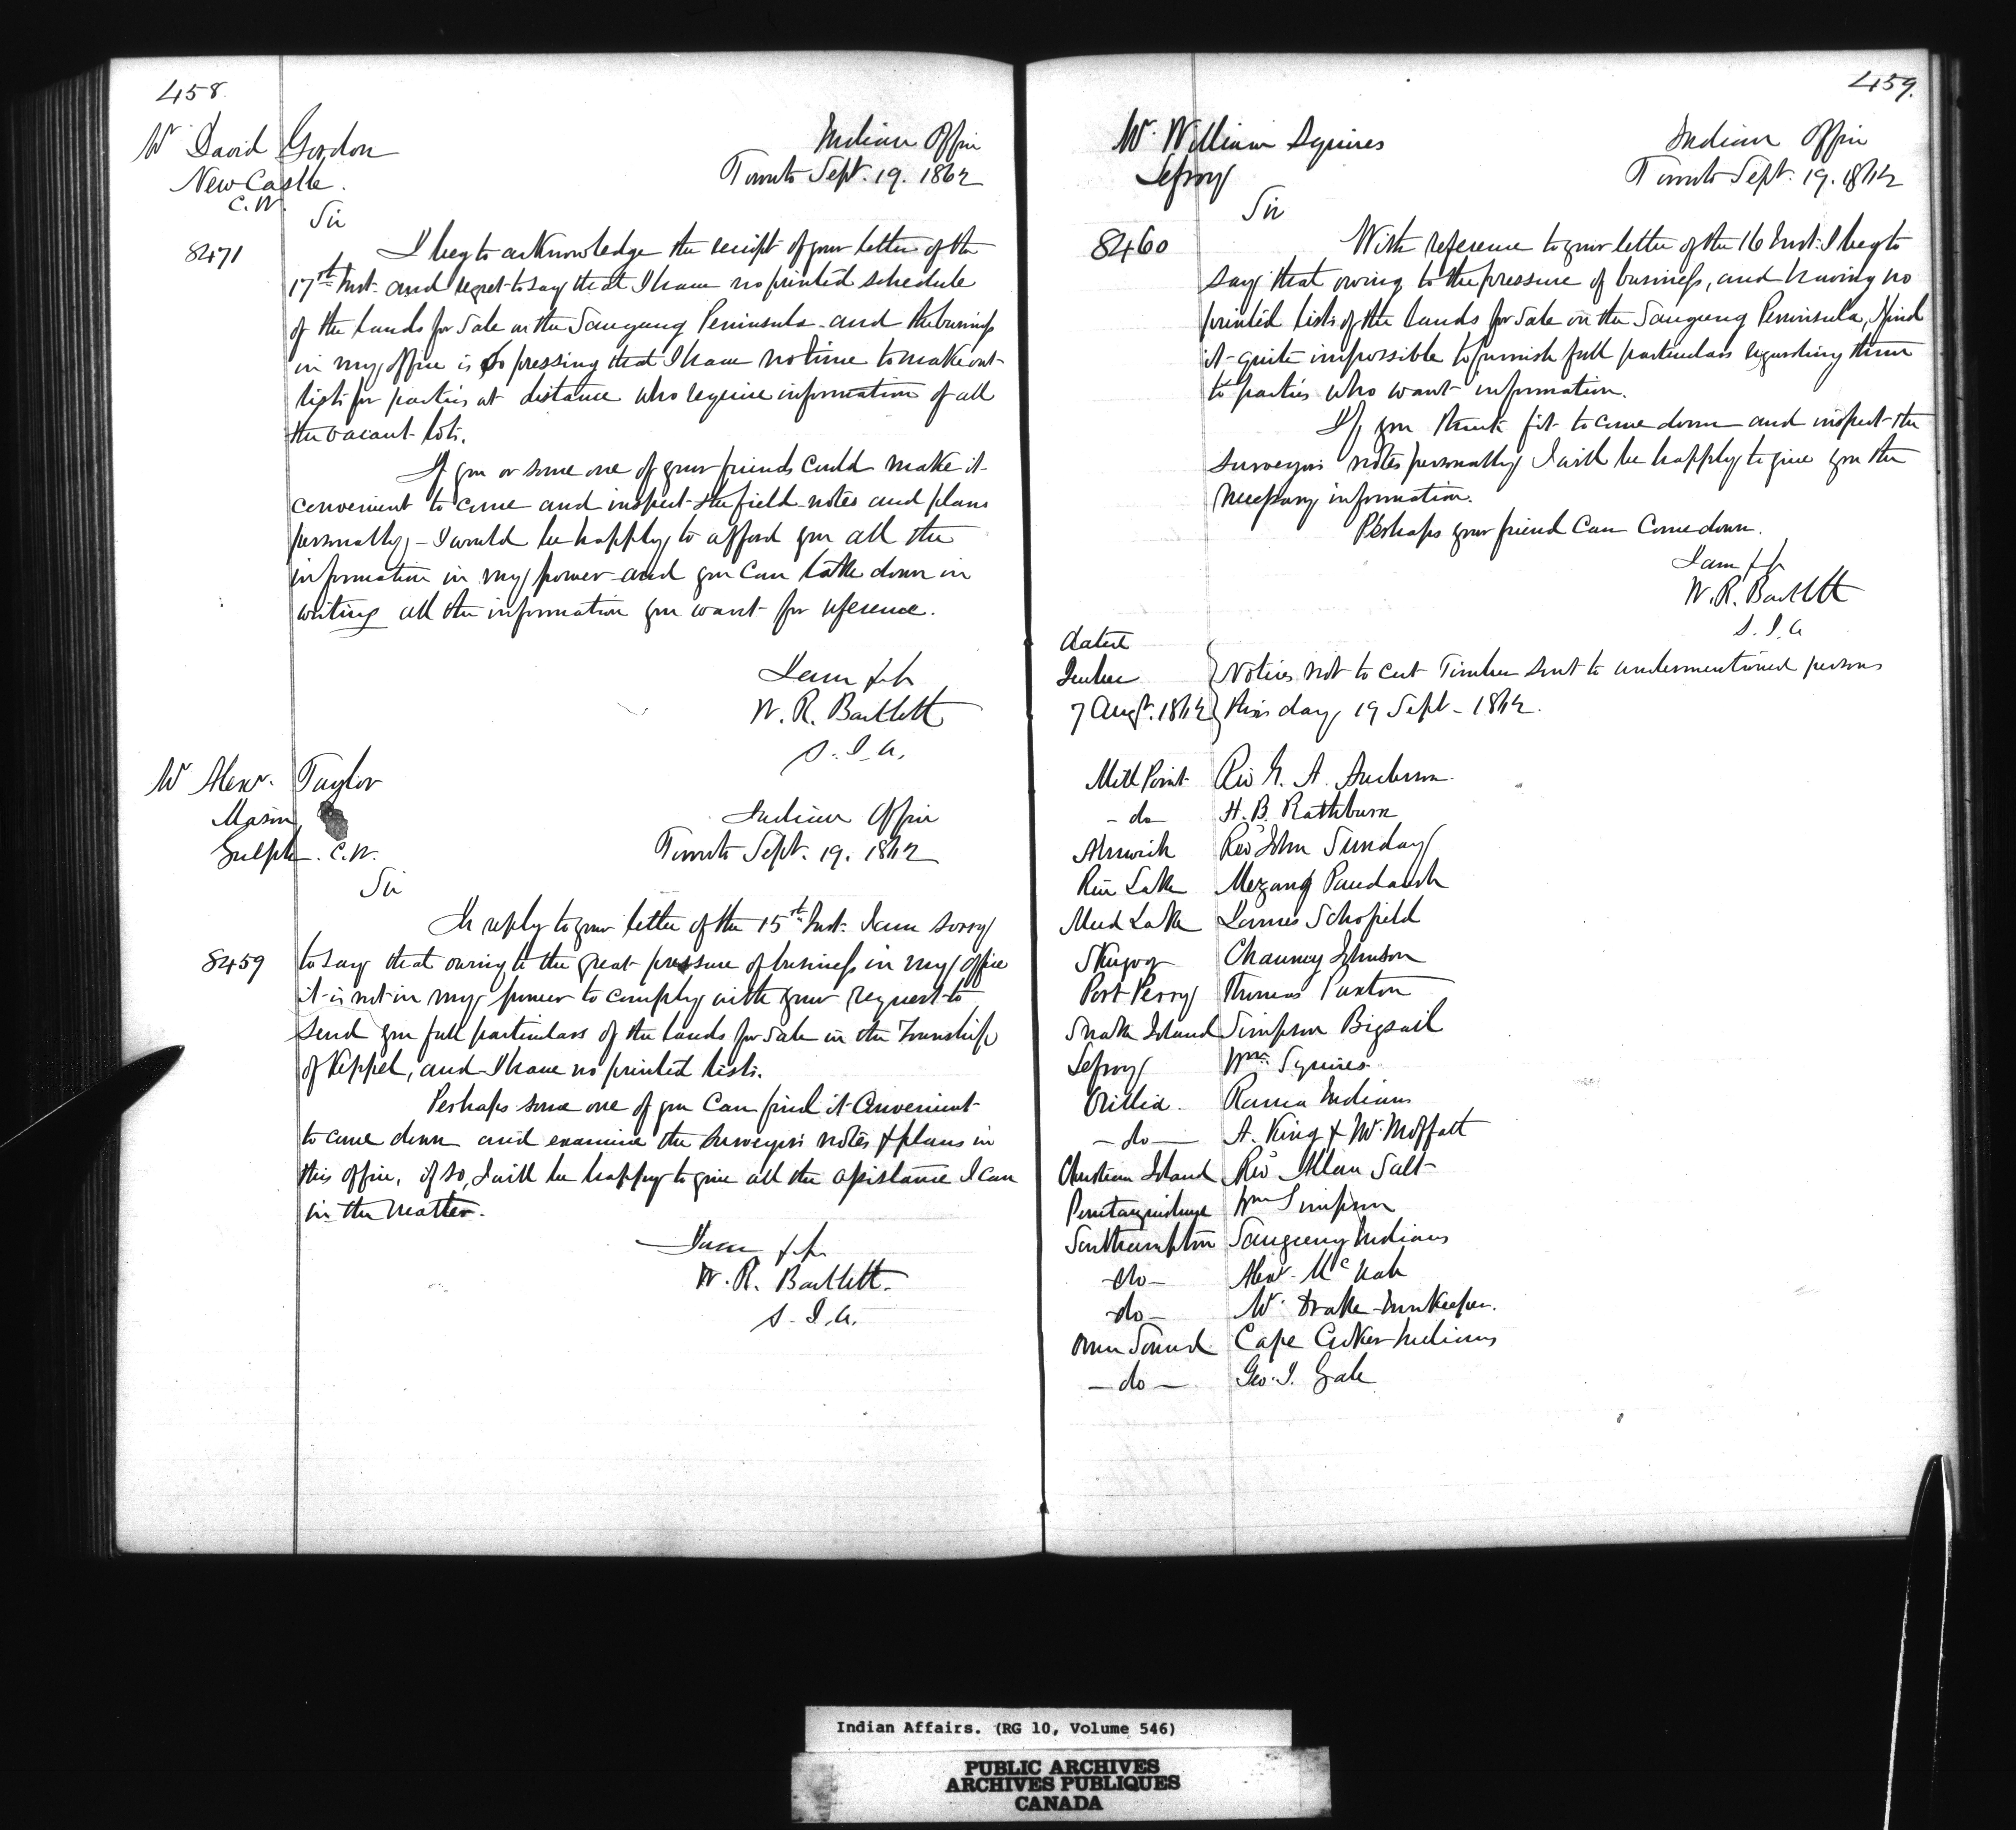 458
Mr David Gordon
New Castle
C.W.
Indian Office
Toronto Sept. 19. 1862
Sir
8471
I beg to acknowledge the receipt of your letter of the
17th Inst. and regret to say that I have no printed schedule
of the Lands for Sale in the Saugeeng Peninsula - and the business
in my office is so pressing that I have no time to make out
lists for parties at distance who require information of all
the vacant lots.
If you or some one of your friends could make it
convenient to come and inspect the field notes and plans
personally, - I would be happy to afford you all the
information in my power - and you can take down in
writing all the information you want for reference.
I am &c
W. R. Bartlett
S. I. A.
Mr Alexr. Taylor
Mason
Guelph. C.W.
Indian Office
Toronto Sept. 19. 1862
Sir
8459
In reply to your letter of the 15th Inst. I am sorry
to say that owing to the great pressure of business in my office
it is not in my power to comply with your request to
send you full particulars of the Lands for Sale in the Township
of Keppel, and I have no printed lists.
Perhaps some one of you can find it convenient
to come down and examine the Surveyors notes & plans in
this office, if so, I will be happy to give all the assistance I can
in the matter.
I am &c
W. R. Bartlett.
S. I. A.
459.
Mr. William Squires
Lefroy
Indian Office
Toronto Sept. 19. 1862
Sir
8460
With reference to your letter of the 16 Inst. I beg to
say that owing to the pressure of business, and having no
printed lists of the Lands for Sale in the Saugeeng Peninsula, I find
it quite impossible to furnish full particulars regarding them
to parties who want information.
If you think fit to come down and inspect the
Surveyors notes personally I will be happy to give you the
necessary information.
Perhaps your friend can come down.
I am &c
W. R. Bartlett
S. I. A
dated
7 Augt. 1862
Notices not to cut Timber sent to undermentioned persons
this day, 19 Sept - 1862.
Mill Point Rev G. A. Anderson.
- do - H. B. Rathburn
Alnwick Revd John Sunday
Rice Lake Mezang Paudaush
Mud Lake James Schofield
Skugog Chauncy Johnson
Port Perry Thomas Paxton
Snake Island Simpson Bigsail
Lefroy Wm. Squires
Orillia. Rama Indians
- do - A. King & Mr. Moffatt
Christian Island Revd Allan Salt
Penetanguishene Wm Simpson
Southampton Saugeeng Indians
- do - Alexr. McNab
- do - Mr. Drake - Innkeeper.
Owen Sound Cape Croker Indians
- do - Geo. J. Gale
Indian Affairs. (RG 10, Volume 546)
PUBLIC ARCHIVES
ARCHIVES PUBLIQUES
CANADA